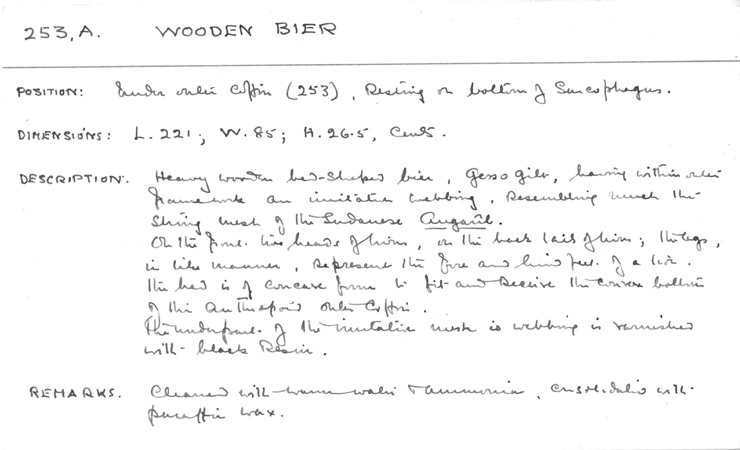 253, A. WOODEN BIER
POSITION: Under outer Coffin (253), Resting on bottom of Sarcophagus.
DIMENSIONS: L. 221; W. 85; H. 26.5, Cents.
DESCRIPTION. Heavy wooden bed-shaped bier, Gesso gilt, having within outer
framework an imitation webbing, Resembling much the
string mesh of the Sudanese Angarîb.
On the front two heads of lion, on the back tails of lion; the legs,
in like manner, Represent the fore and hind feet of a lion.
The bed is of concave form to fit and Receive the convex bottom
of the anthropoid outer Coffin.
The underface of the imitative mesh or webbing is varnished
with black Resin.
REMARKS. Cleaned with warm water & ammonia, consolidated with
paraffin wax.